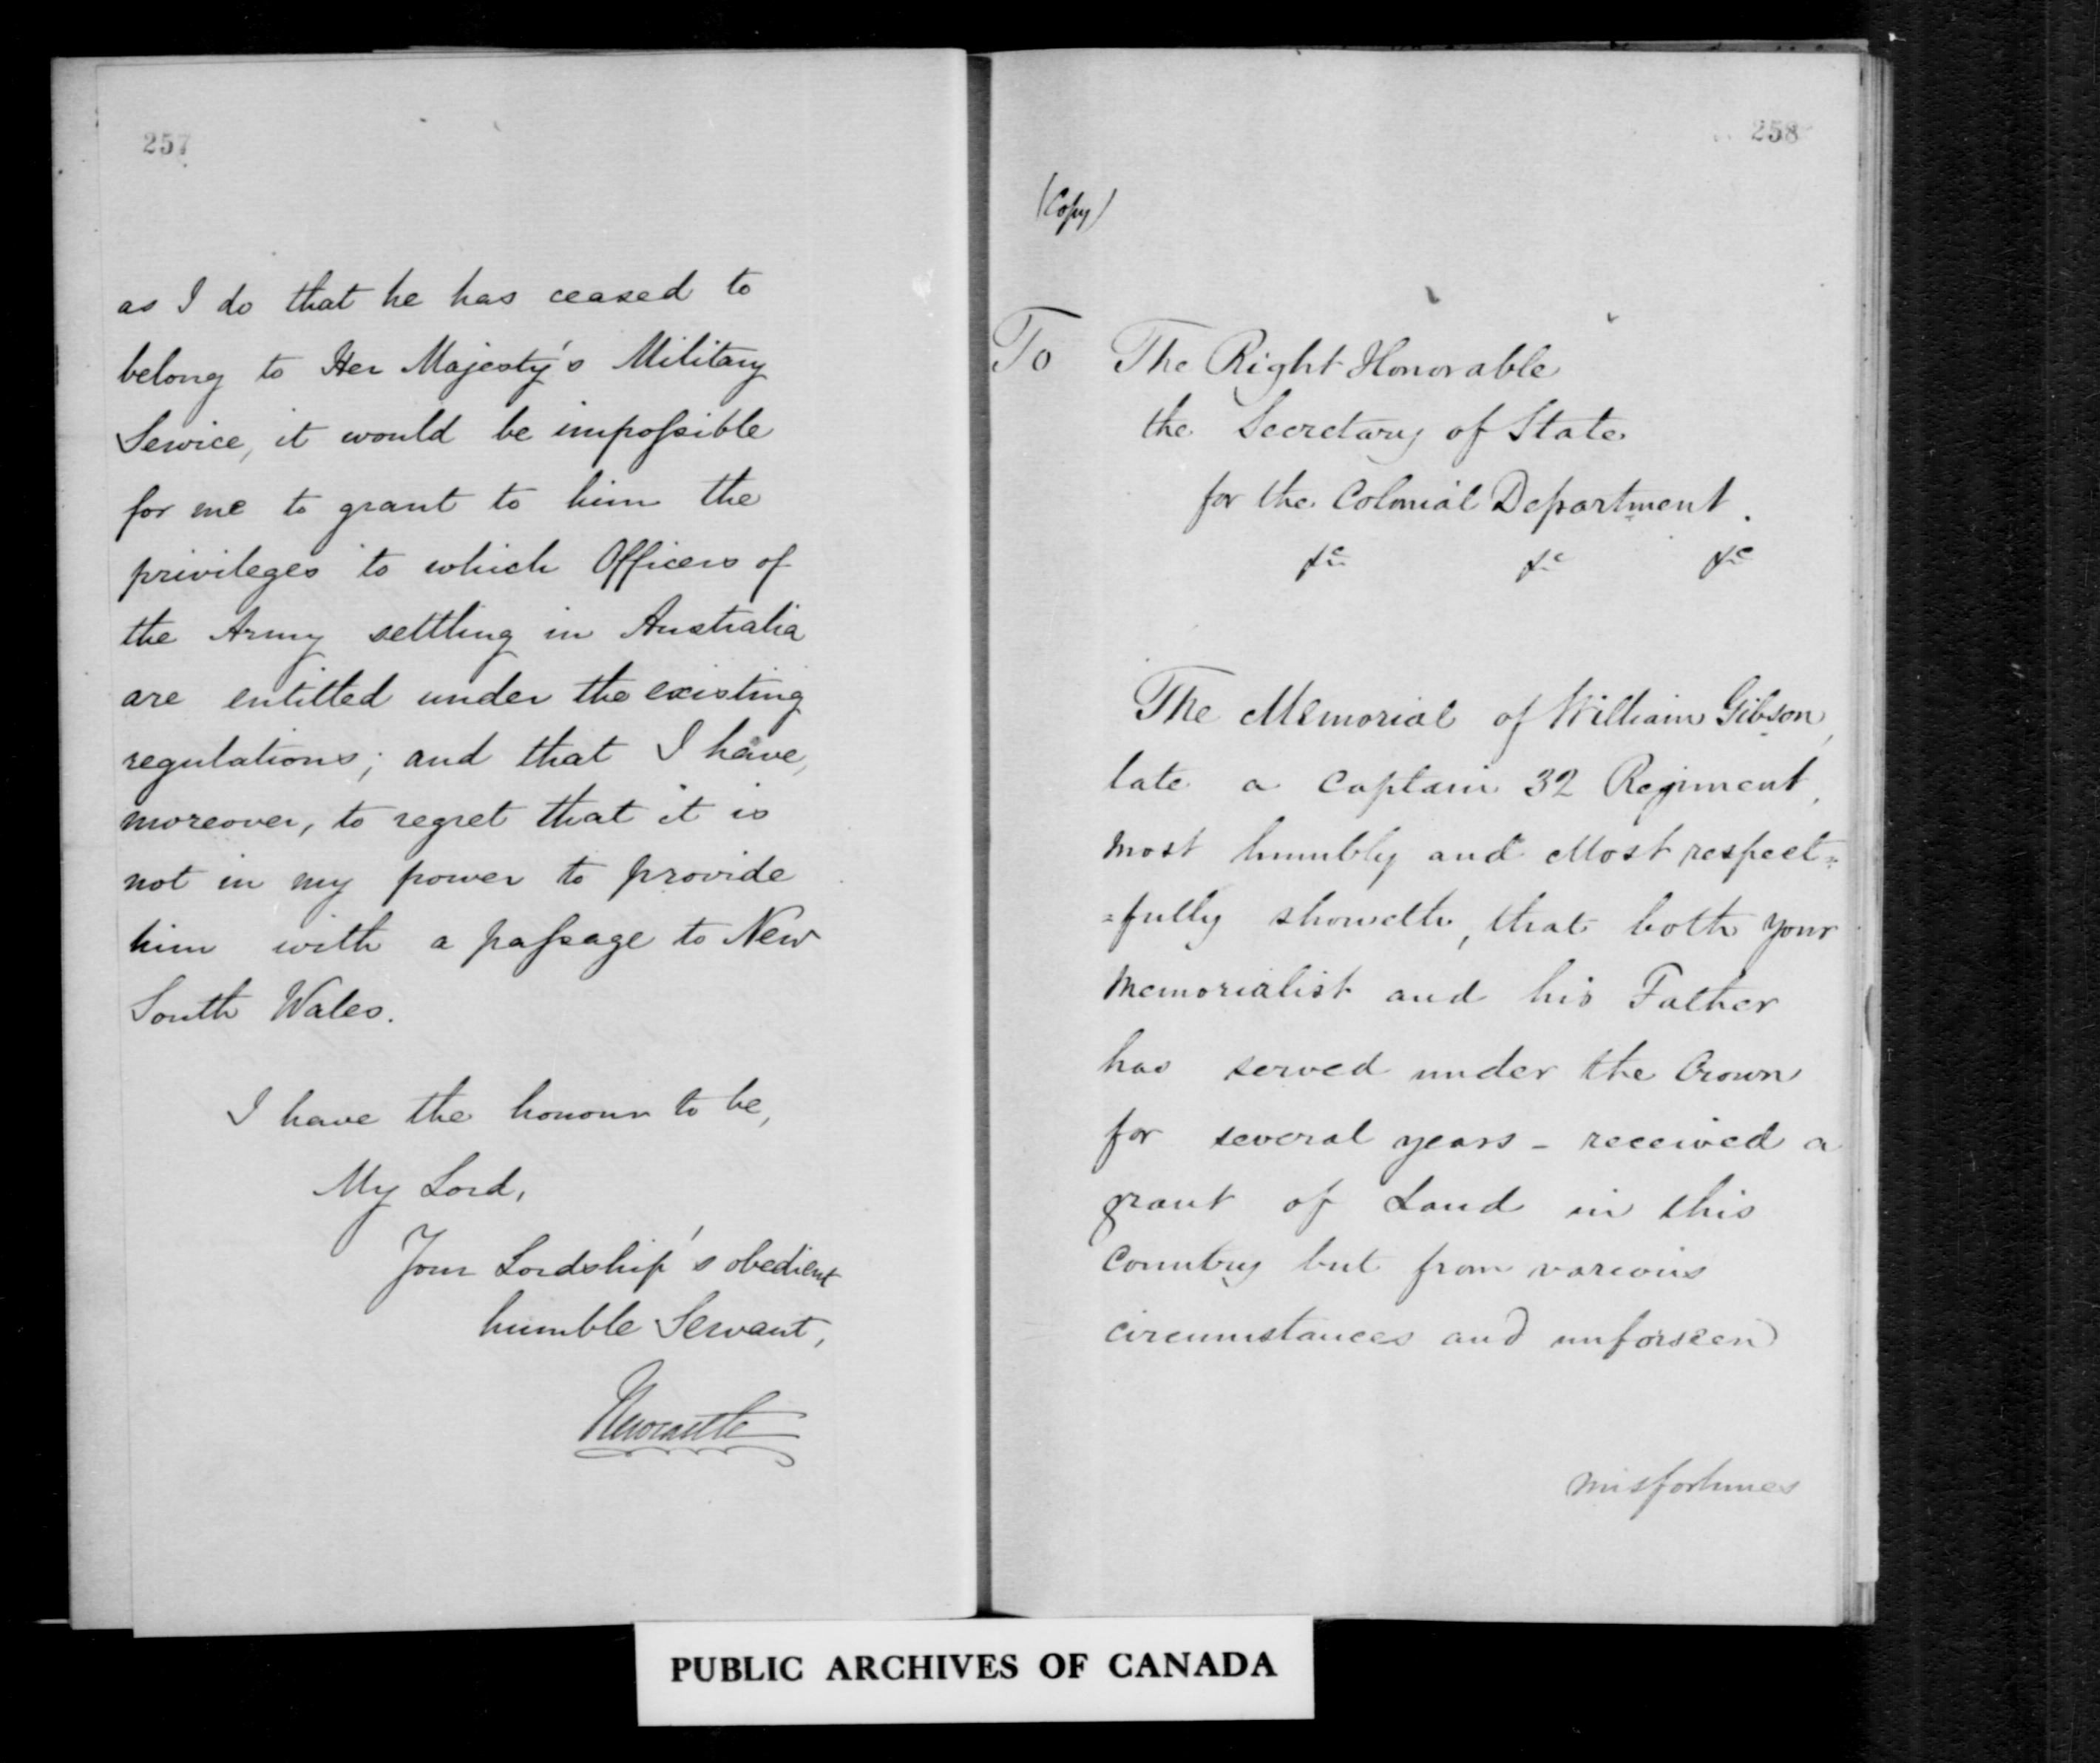 257
as I do that he has ceased to
belong to Her Majesty's Military
Service, it would be impossible
for me to grant to him the
privileges to which Officers of
the Army settling in Australia
are entitled under the existing
regulations; and that I have,
moreover, to regret that it is
not in my power to provide
him with a passage to New
South Wales.
I have the honour to be,
My Lord,
Your Lordship's obedient
humble Servant,
Newcastle
258
(Copy)
To The Right Honorable
the Secretary of State
for the Colonial Department.
&c &c &c
The Memorial of William Gibson,
late a Captain 32 Regiment,
most humbly and Most respect=
=fully showeth, that both your
Memorialist and his Father
has served under the Crown
for several years - received a
grant of Land in this
Country but from various
circumstances and unforseen
misfortunes
PUBLIC ARCHIVES OF CANADA